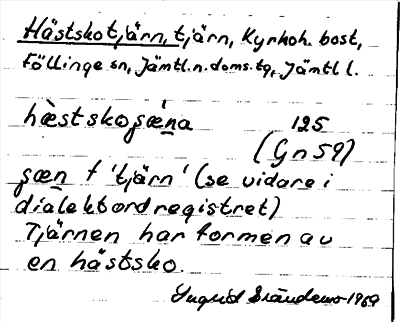 Hästskotjärn, tjärn, Kyrkoh. bost,
Föllinge sn, Jämtl. n. doms. tg, Jämtl l.
hæ̀stskoʂǽna 125
(Gn59)
ʂæn f 'tjärn' (se vidare i
dialektordregistret)
Tjärnen har formen av
en hästsko.
Ingrid 1969